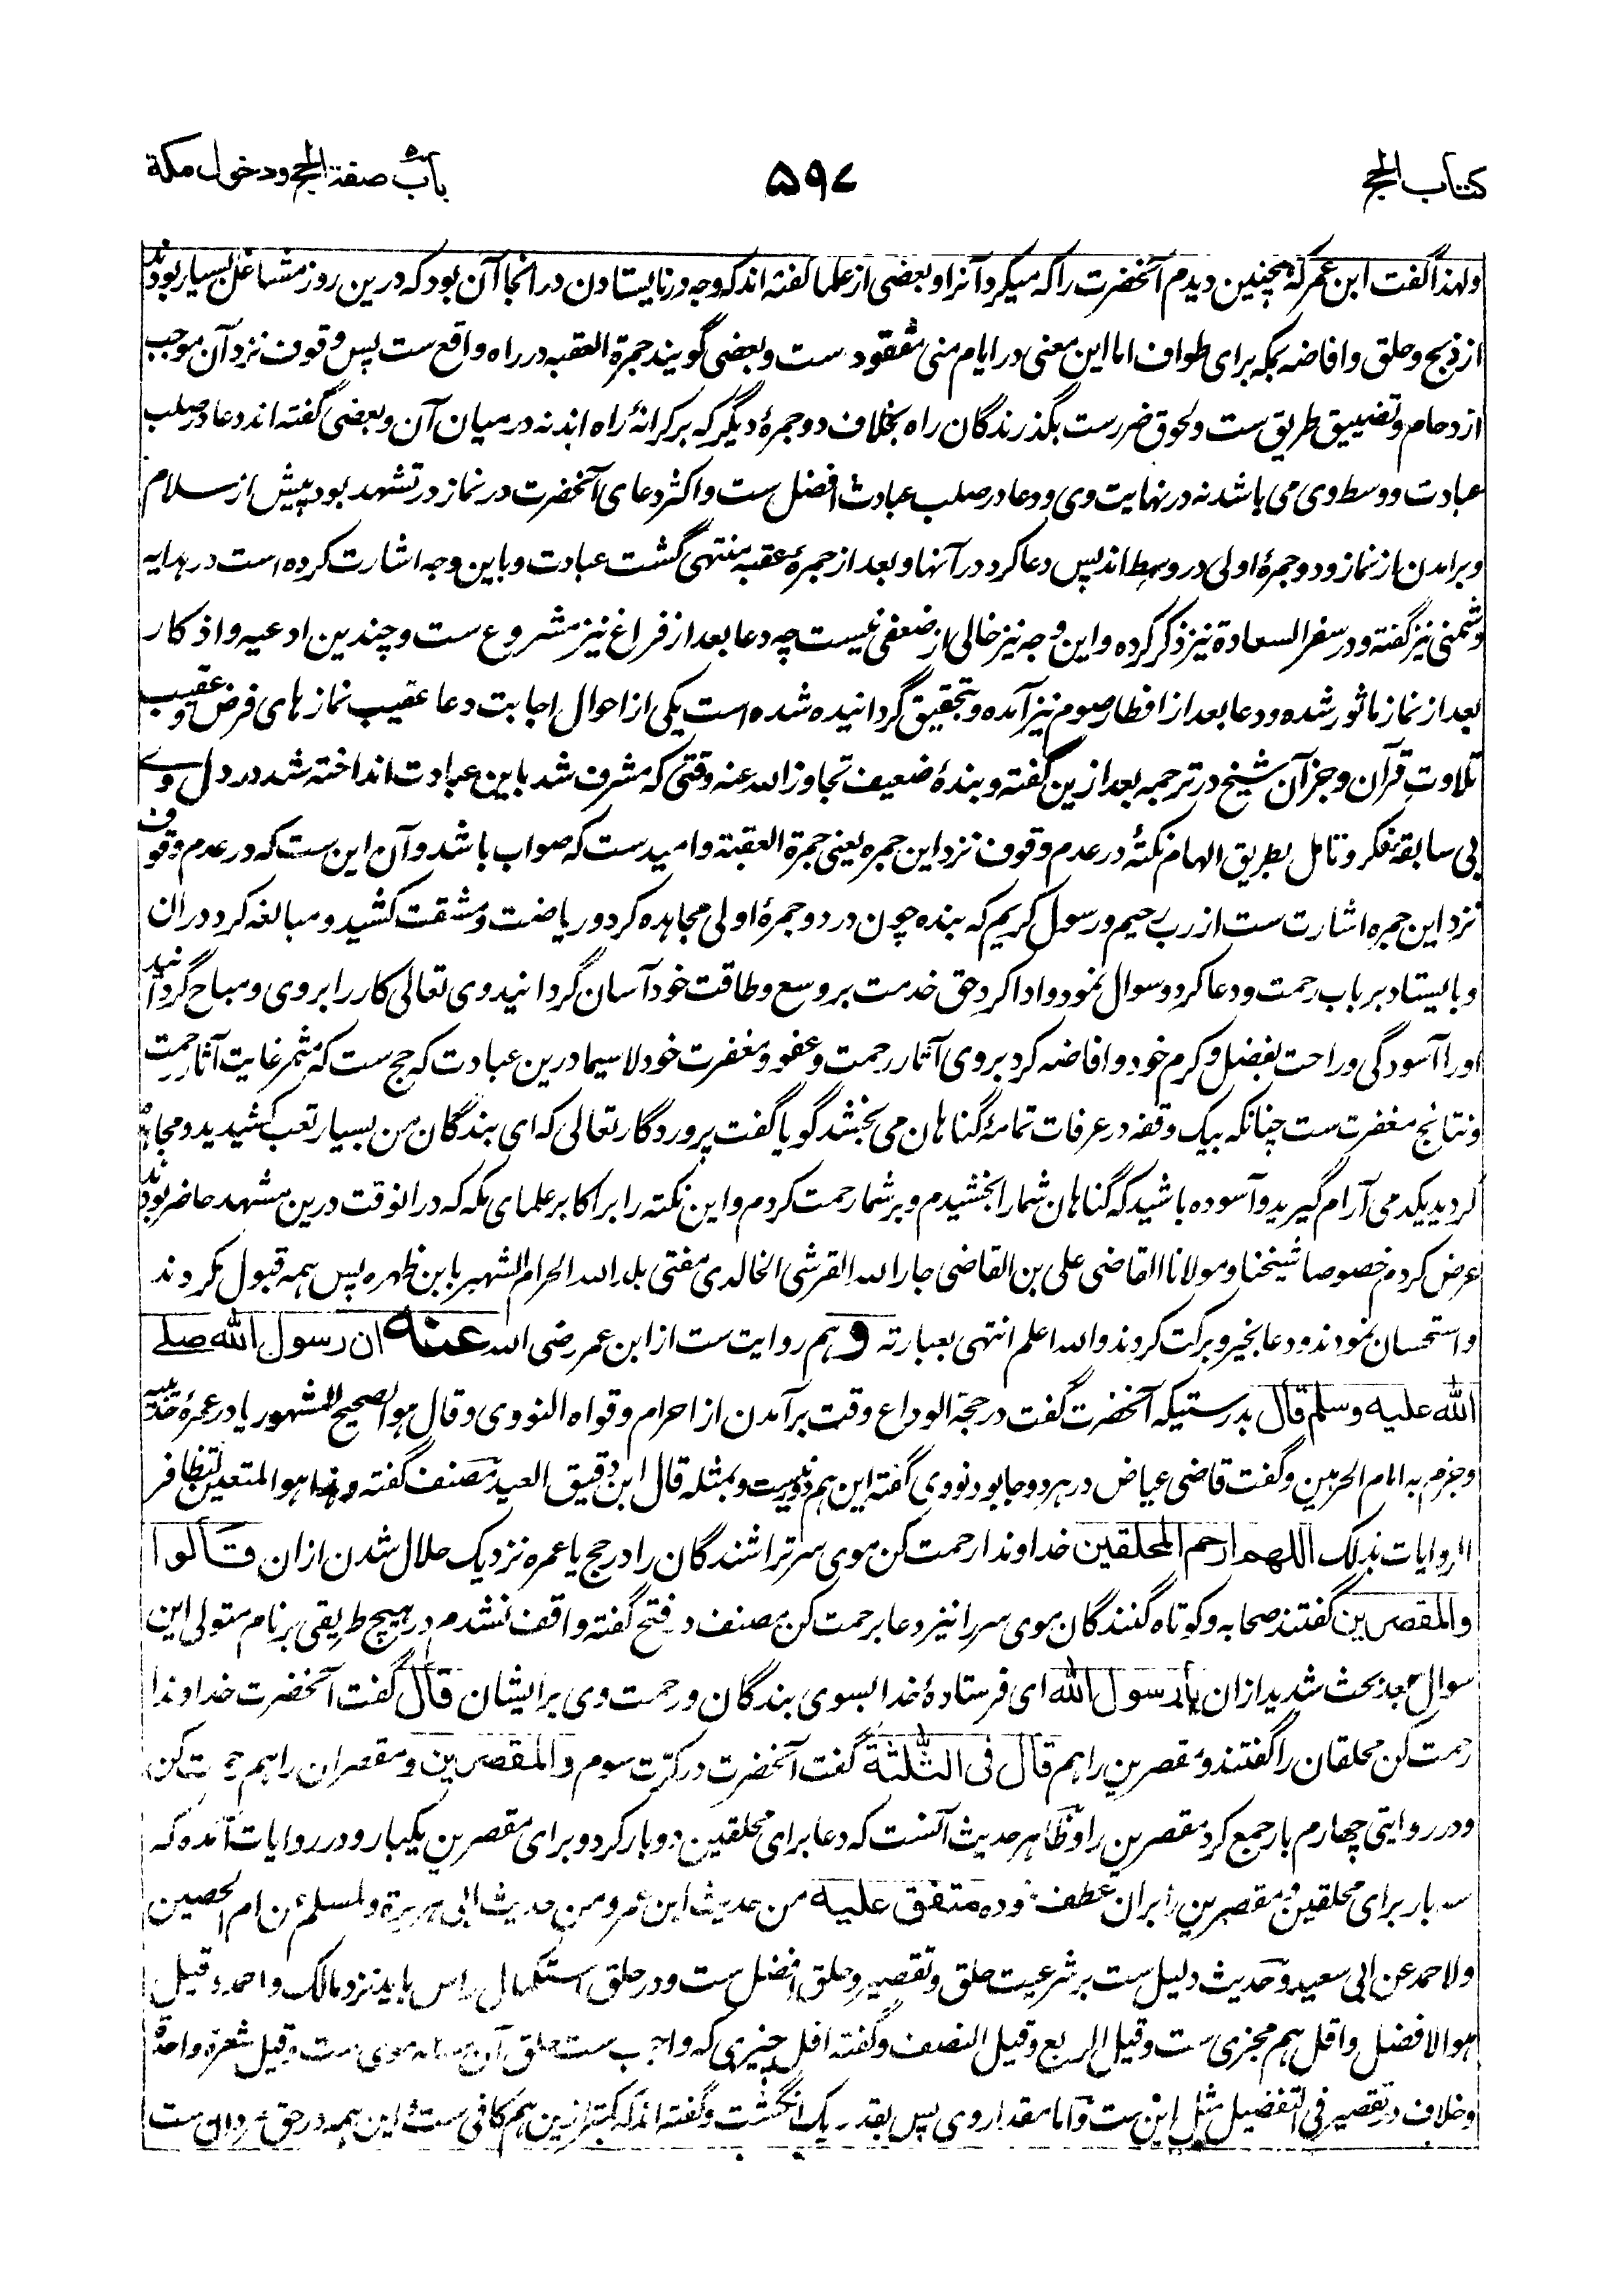 کتاب الحج
۵۹۷
باب صفة الحج ودخول مکة
ولهذا گفت ابن عمر که همچنین دیدم آنحضرت را که میکرد آنرا و بعضی از علما گفته اند که وجه در نایستادن در انجا آن بود که درین روز مشاغل بسیار بودند
از ذبح و حلق و افاضه بمکه برای طواف اما این معنی در ایام منی مفقود ست و بعضی گویند جمرة العقبه در راه واقع ست پس وقوف نزد آن موجب
ازدحام و تضییق طریق ست و لحوق ضررست بگذرندگان راه بخلاف دو جمرهٔ دیگر که بر کرانهٔ راه اند نه در میان آن و بعضی گفته اند دعا در صلب
عبادت و وسط وی می باشد نه در نهایت وی و دعا در صلب عبادت افضل ست و اکثر دعای آنحضرت در نماز در تشهد بود پیش از سلام
و برامدن از نماز و دو جمرهٔ اولی در وسط اند پس دعا کرد در آنها و بعد از جمرهٔ عقبه منتهی گشت عبادت و باین وجه اشارت کرده است در هدایه
و شمنی نیز گفته و در سفر السعادة نیز ذکر کرده و این وجه نیز خالی از ضعفی نیست چه دعا بعد از فراغ نیز مشروع ست و چندین ادعیه و اذکار
بعد از نماز ماثور شده و دعا بعد از افطار صوم نیز آمده و تحقیق گردانیده شده است یکی از احوال اجابت دعا عقیب نمازهای فرض و عقیب
تلاوت قرآن و جز آن شیخ در ترجمه بعد ازین گفته و بندهٔ ضعیف تجاوز الله عنه وقتی که مشرف شد باین عبادت انداخته شد در دل وے
بی سابقه تفکر و تامل بطریق الهام نکتهٔ در عدم وقوف نزد این جمره یعنی جمرة العقبة و امیدست که صواب باشد و آن این ست که در عدم وقوف
نزد این جمره اشارت ست از رب رحیم و رسول کریم که بنده چون در دو جمرهٔ اولی مجاهده کرد و ریاضت و مشقت کشید و مبالغه کرد دران
و بایستاد بر باب رحمت و دعا کرد و سوال نمود و ادا کرد حق خدمت بر وسع و طاقت خود آسان گردانید وی تعالی کار را بر وی و مباح گردانید
او را آسودگی و راحت بفضل و کرم خود و افاضه کرد بر وی آثار رحمت و عفو و مغفرت خود لاسیما درین عبادت که حج ست که مثمر غایت آثار رحمت
و نتائج مغفرت ست چنانکه بیک وقفه در عرفات تمامهٔ گناهان می بخشد گویا گفت پروردگار تعالی که ای بندگان من بسیار تعب کشیدید و مجاهده
کردید یکدمی آرام گیرید و آسوده باشید که گناهان شما را بخشیدم و بر شما رحمت کردم و این نکته را بر اکابر علمای مکه که در انوقت درین مشهد حاضر بودند
عرض کردم خصوصا شیخنا و مولانا القاضی علی بن القاضی جار الله القرشی الخالدی مفتی بلد الله الحرام الشهیر بابن ظهیره پس همه قبول کردند
و استحسان نمودند و دعا بخیر و برکت کردند والله اعلم انتهی بعبارته و هم روایت ست از ابن عمر رضی الله عنه ان رسول الله صلے
الله علیه وسلم قال بدرستیکه آنحضرت گفت در حجة الوداع وقت برآمدن از احرام و قواه النووی و قال هو الصحیح المشهور یا در عمرهٔ حدیبیه
و جزم به امام الحرمین و گفت قاضی عیاض در هر دو جا بود نووی گفته این هم دور نیست و بمثله قال ابن دقیق العید مصنف گفته و هذا هو المتعین لتظافر
الروایات بذلک اللهم ارحم المحلقین خداوندا رحمت کن موی سر تراشندگان را در حج یا عمره نزدیک حلال شدن ازان قالوا
والمقصرین گفتند صحابه و کوتاه کنندگان موی سر را نیز دعا برحمت کن مصنف در فتح گفته واقف نشدم در هیچ طریقی بر نام متولی این
سوال بعد بحث شدید ازان یا رسول الله ای فرستادهٔ خدا بسوی بندگان و رحمت وی بر ایشان قال گفت آنحضرت خداوندا
رحمت کن محلقان را گفتند و مقصرین را هم قال فی الثلثة گفت آنحضرت در کرّت سوم والمقصرین و مقصران را هم رحمت کن
و در روایتی چهارم بار جمع کرد مقصرین را و ظاهر حدیث آنست که دعا برای محلقین دوبار کرد و برای مقصرین یکبار و در روایات آمده که
سه بار برای محلقین و مقصرین را بران عطف نموده متفق علیه من حدیث ابن عمر و من حدیث ابی هریرة ولمسلم عن ام الحصین
ولاحمد عن ابی سعید و حدیث دلیل ست بر شرعیت حلق و تقصیر و حلق افضل ست و در حلق استکمال راس باید نزد مالک و احمد و قیل
هو الافضل و اقل هم مجزی ست و قیل الربع و قیل النصف و گفته اقل چیزی که واجب ست حلق آن سه موی ست و قیل شعرة واحدة
و خلاف در تقصیر فی التفضیل مثل این ست و اما مقدار وی پس بقدر یک انگشت و گفته اند که کمتر ازین هم کافی ست و این همه در حق مردان ست